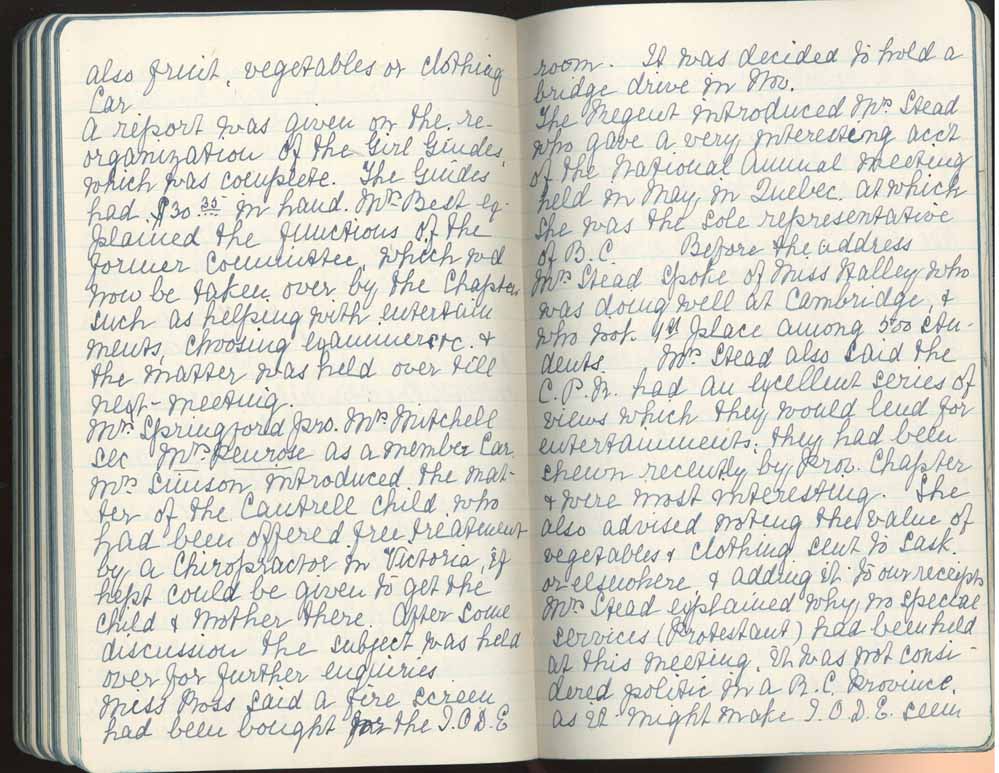 also fruit, vegetables or clothing
Car
A report was given on the re-
organization of the Girl Guides,
which was complete. The Guides
had $30.35 in hand. Mrs Best ex-
plained the functions of the
former Committee, which wd
now be taken over by the Chapter
such as helping with entertain
ments, choosing examiners etc. &
the matter was held over till
next meeting.
Mrs Springford pro. Mrs Mitchell
sec Mrs Penrose as a member Car.
Mrs Simson introduced the mat-
ter of the Cantrell child who
had been offered free treatment
by a Chiropractor in Victoria, if
help could be given to get the
child & Mother there. After some
discussion the subject was held
over for further enquiries
Miss Ross said a fire screen
had been bought for the I.O.D.E
room. It was decided to hold a
bridge drive in Nov.
The Regent introduced Mrs Stead
who gave a very interesting acct
of the National Annual meeting
held in May in Quebec. at which
she was the sole representative
of B.C. Before the address
Mrs Stead spoke of Miss Halley who
was doing well at Cambridge, &
who took 4th place among 500 stu-
dents. Mrs Stead also said the
C.P.R. had an excellent series of
views which they would lend for
entertainments; they had been
shewn recently by Prov. Chapter
& were most interesting. She
also advised noting the value of
vegetables & clothing sent to Sask.
or elsewhere & adding it to our receipts
Mrs Stead explained why no special
services (Protestant) had been held
at this meeting. It was not consi-
dered politic in a R.C. Province,
as it might make I.O.D.E. seem